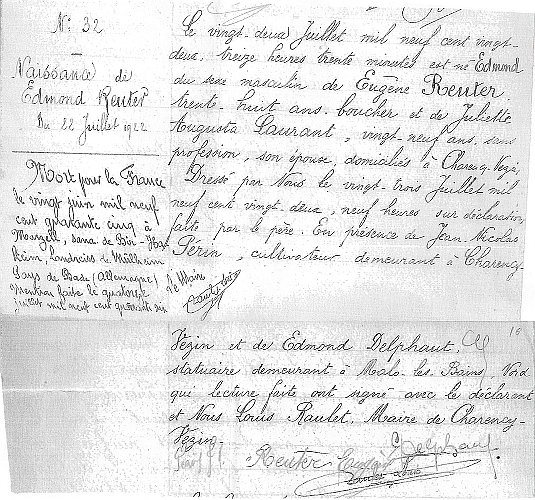 N: 32
Naissance de
Edmond Reuter
Du 22 Juillet 1922
Mort pour la France
le vingt juin mil neuf
cent quarante cinq à
sana de
Pays de Bade (Allemagne)
Mention faite le quatorze
mil neuf cent quarante six
Le Maire
Le vingt-deux Juillet mil neuf cent vingt-
deux, treize heures trente minutes est né Edmond
du sexe masculin de Eugène Reuter,
trente huit ans, boucher et de Juliette
Augusta Laurant, vingt neuf ans, sans
profession, son épouse, domiciliés à Charency-Vezin,
Dressé par Nous le vingt-trois Juillet mil
neuf cent vingt-deux, neuf heures sur déclaration
faite par le père. En présence de Jean, Nicolas
Périn, cultivateur demeurant à Charency-
Vézin et de Edmond Delphaut,
statuaire demeurant à Malo-les-Bains, Nord
qui lecture faite ont signé avec le déclarant
et Nous Louis Raulet, Maire de Charency-
Vézin.
Delphaut
Reuter Eugène